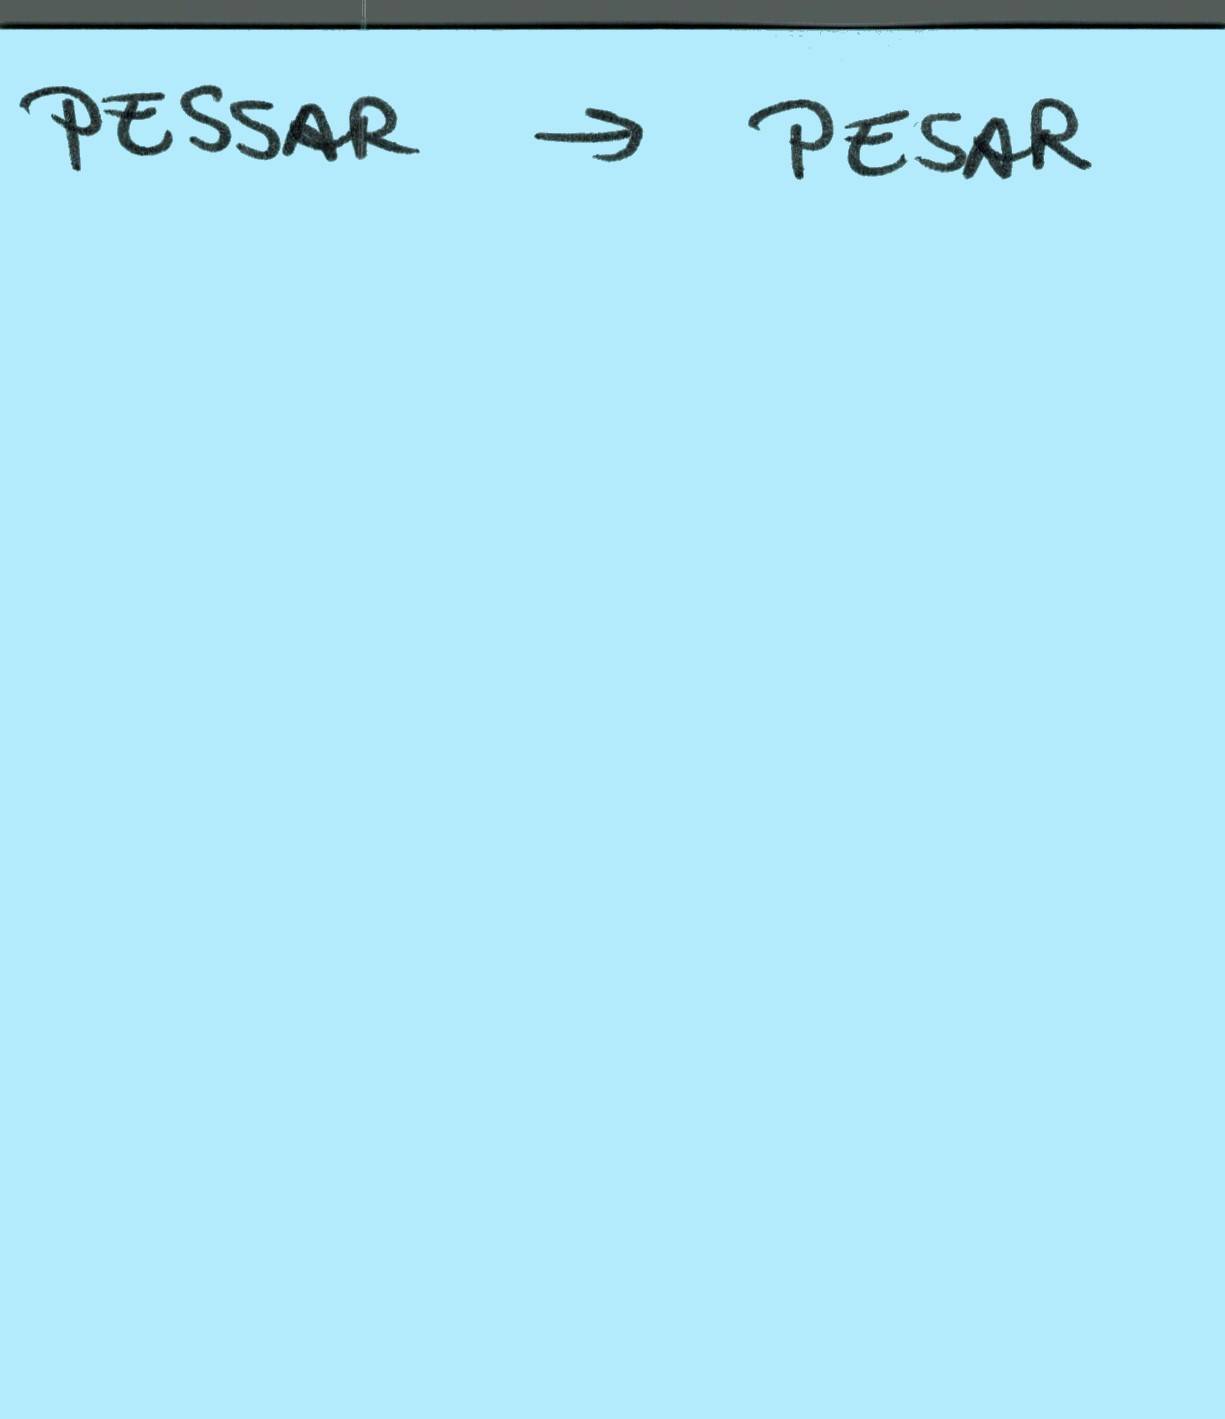 PESSAR → PESAR